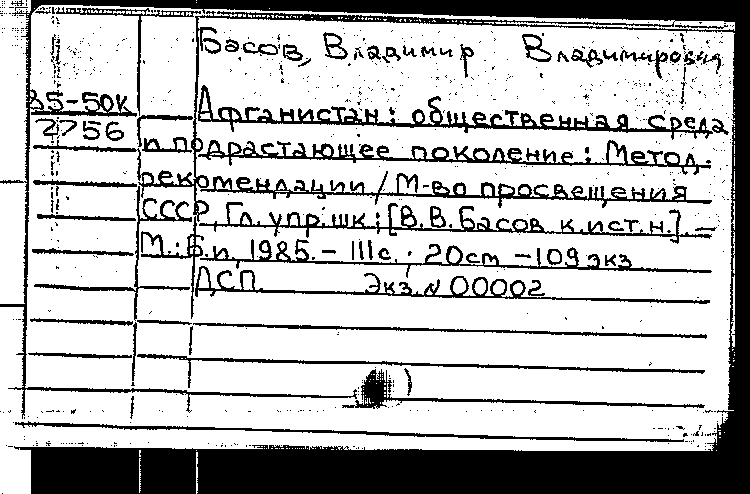 Басов, Владимир Владимирович
85-50К
2756
Афганистан: общественная среда
и подрастающее поколение: Метод.
рекомендации / М-во просвещения
СССР, Гл. упр. шк.; [В.В. Басов к.ист.н.]. –
М.: Б.и, 1985. – 111с.; 20cm – 109 экз
ДСП. Экз. N 00002